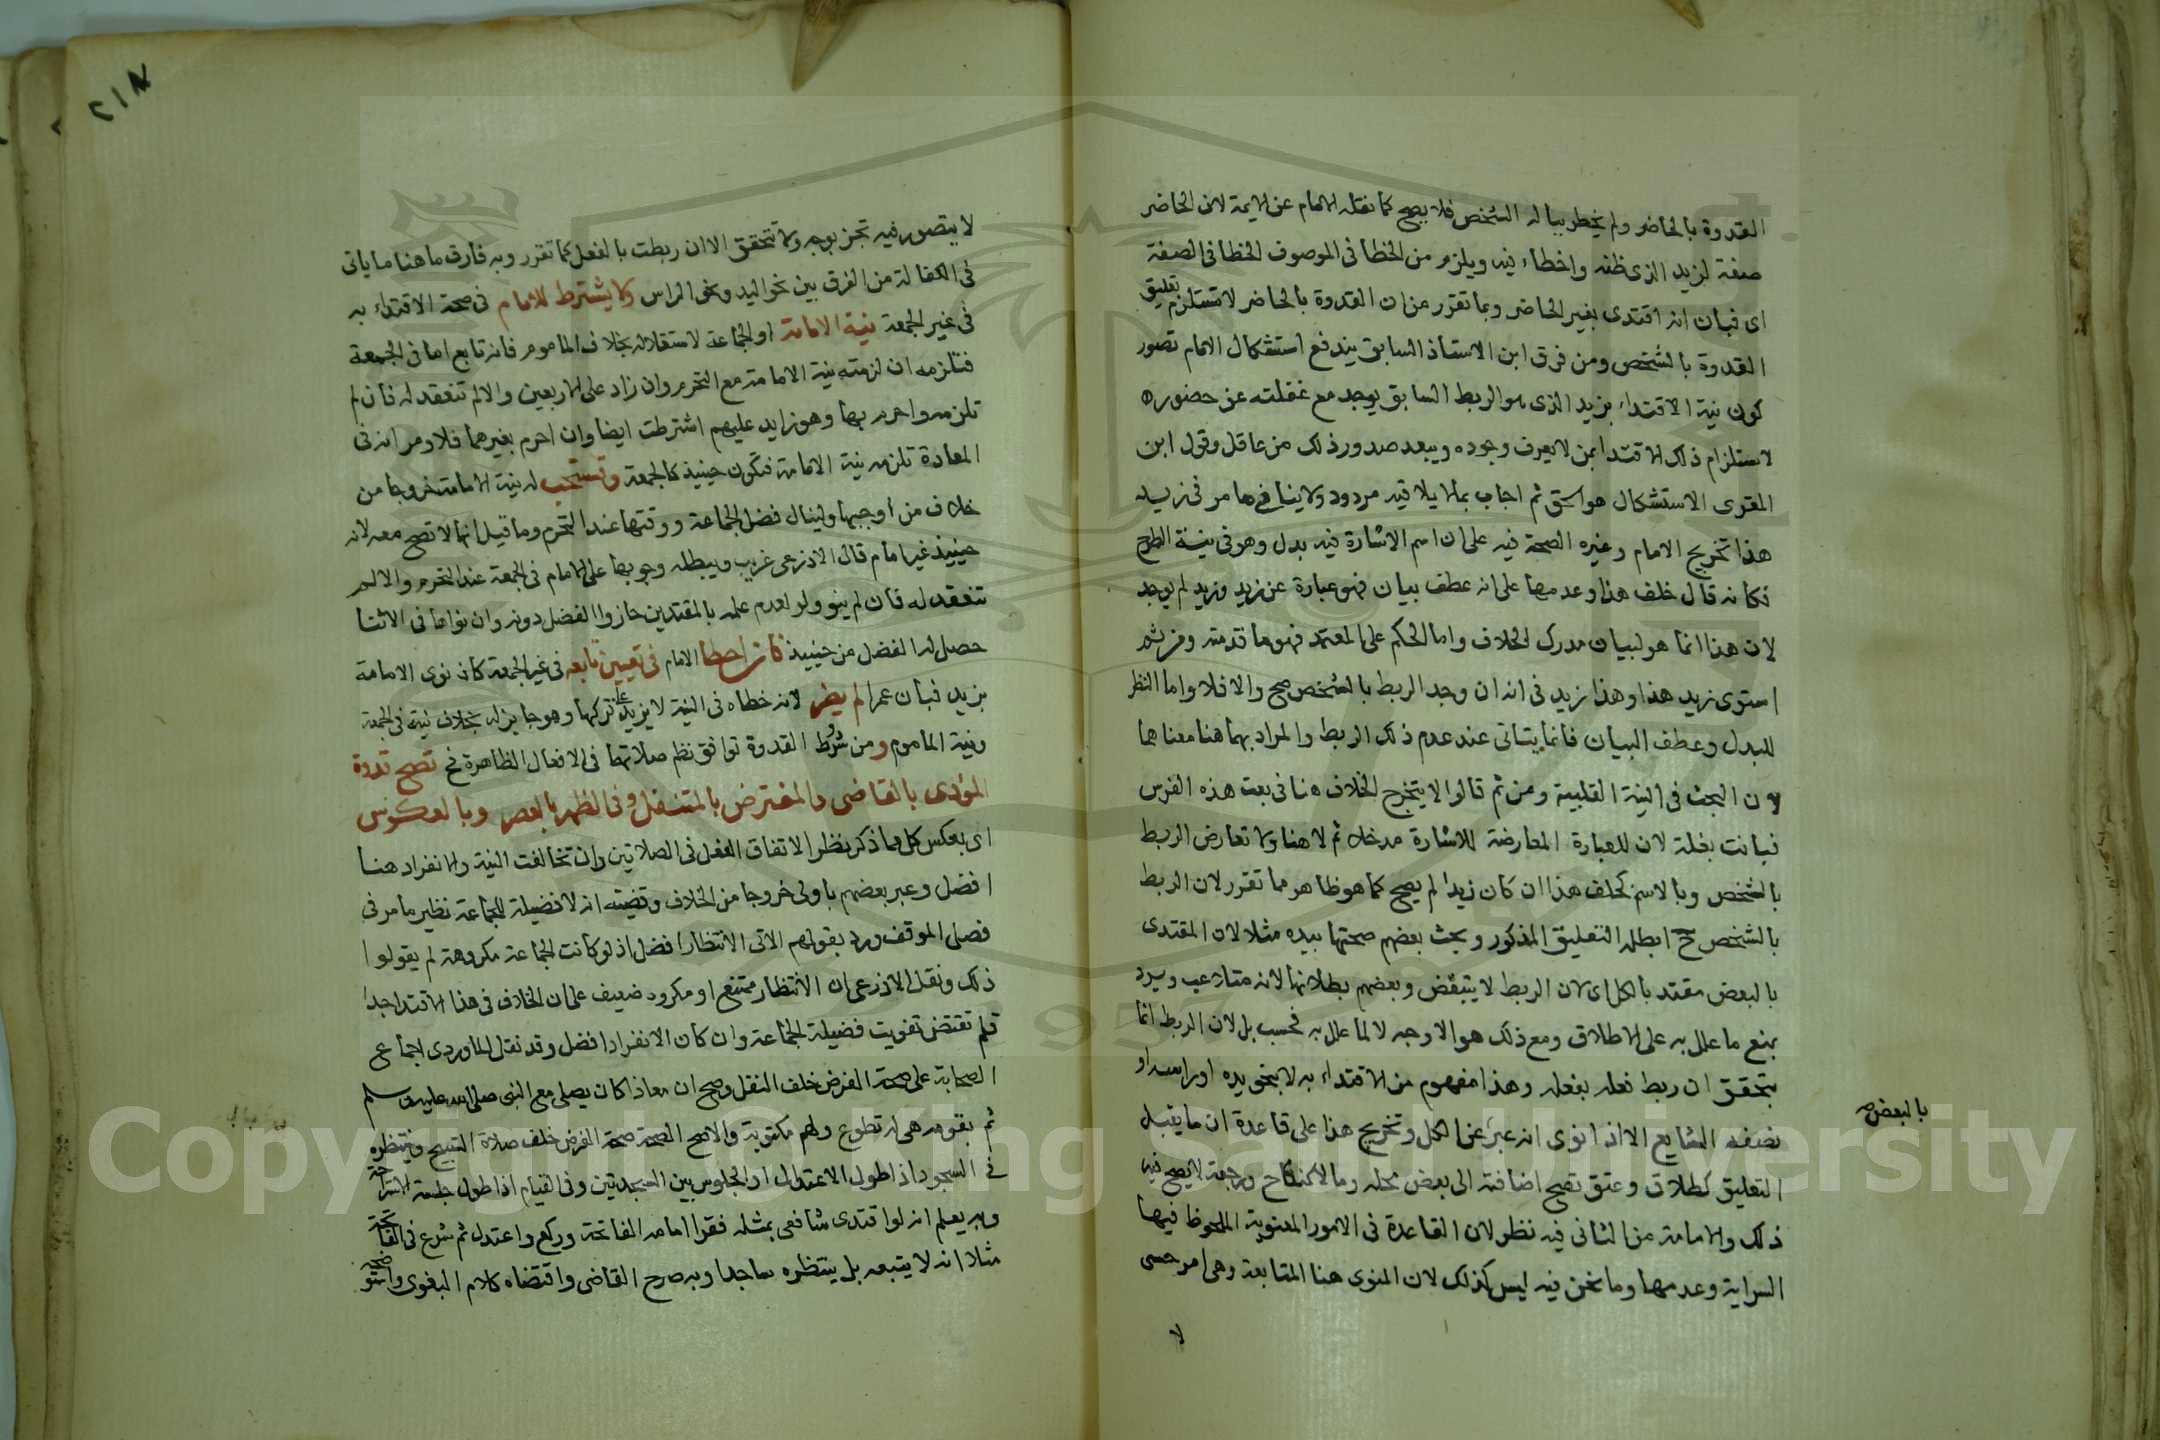 القدوة بالحاضر ولم يخطر بباله الشخص فلا يصح كما نقله الامام عن الايمة لان الحاضر
صفة لزيد الذى ظنه واخطاء فيه ويلزم من الخطا فى الموصوف الخطا فى الصفة
اى فبان انه اقتدى بغير الحاضر وبما تقرر من ان القدوة بالحاضر لا تستلزم تعليق
القدوة بالشخص ومن فرق ابن الاستاذ السابق يندفع استشكال الامام تصور
كون نية الاقتداء بزيد الذى هو الربط السابق يوجد مع غفلته عن حضوره
لاستلزام ذلك الاقتدا بمن لا يعرف وجوده ويبعد صدور ذلك من عاقل وقول ابن
المقرى الاستشكال هو الحق ثم اجاب بما لا يلاقيه مردود ولا ينافى ما مر فى زيد
هذا تخريج الامام وغيره الصحة فيه على ان اسم الاشارة فيه بدل وهو فى نية الطرح
فكانه قال خلف هذا وعدمها على انه عطف بيان فهو عبارة عن زيد وزيد لم يوجد
لان هذا انما هو لبيان مدرك الخلاف واما الحكم على المعتمد فهو ما قدمته ومن ثم
استوى زيد هذا وهذا زيد فى انه ان وجد الربط بالشخص صح والا فلا واما النظر
للبدل وعطف البيان فانما يتاتى عند عدم ذلك الربط والمراد بهما هنا معناهما
لان البحث فى النية القلبية ومن ثم قالوا لا يتخرج الخلاف هنا فى بعت هذه الفرس
فبانت بغلة لان للعبارة المعارضة للاشارة مدخلا ثم لا هنا ولا تعارض الربط
بالشخص وبالاسم كخلف هذا ان كان زيدا لم يصح كما هو ظاهر مما تقرر لان الربط
بالشخص ح ابطله التعليق المذكور وبحث بعضهم صحتها بيده مثلا لان المقتدى
بالبعض مقتد بالكل اى لان الربط لا يتبعض وبعضهم بطلانها لانه متلاعب ويرد
بمنع ما علل به على الاطلاق ومع ذلك هو الاوجه لا لما علل به فحسب بل لان الربط انما
يتحقق ان ربط فعله بفعله وهذا مفهوم من الاقتداء به لا بنحو يده او راسه او
نصفه الشايع الا اذا نوى انه عبر عن الكل وتخريج هذا على قاعدة ان ما يقبل
بالبعض
التعليق كطلاق وعتق تصح اضافته الى بعض محله وما لا كنكاح ورجعة لا يصح فيه
ذلك والامامة من الثانى فيه نظر لان القاعدة فى الامور المعنوية الملحوظ فيها
السراية وعدمها وما نحن فيه ليس كذلك لان المنوى هنا المتابعة وهى امر حسى
لا
لا يتصور فيه تجز بوجه ولا تتحقق الا ان ربطت بالفعل كما تقرر وبه فارق ما هنا ما ياتى
فى الكفالة من الفرق بين نحو اليد ونحو الراس ولا يشترط للامام فى صحة الاقتداء به
فى غير الجمعة نية الامامة او الجماعة لاستقلاله بخلاف الماموم فانه تابع اما فى الجمعة
فتلزمه ان لزمته نية الامامة مع التحرم وان زاد على الاربعين والا لم تنعقد له فان لم
تلزمه واحرم بها وهو زايد عليهم اشترطت ايضا وان احرم بغيرها فلا ومر انه فى
المعادة تلزمه نية الامامة فتكون حينيذ كالجمعة وتستحب له نية الامامة خروجا من
خلاف من اوجبها ولينال فضل الجماعة ووقتها عند التحرم وما قيل انها لا تصح معه لانه
حينيذ غير امام قال الاذرعى غريب ويبطله وجوبها على الامام فى الجمعة عند التحرم والا لم
تنعقد له فان لم ينو ولو لعدم علمه بالمقتدين حازوا الفضل دونه وان نواها فى الاثنا
حصل له الفضل من حينيذ فان اخطا الامام فى تعيين تابعه فى غير الجمعة كان نوى الامامة
بزيد فبان عمرا لم يضر لانه خطاه فى النية لا يزيد على تركها وهو جايز له بخلاف نيته فى الجمعة
ونية الماموم ومن شرط القدوة توافق نظم صلاتهما فى الافعال الظاهرة ح تصح قدوة
المؤدى بالقاضى والمفترض بالمتنفل وفى الظهر بالعصر وبالعكوس
اى بعكس كل مما ذكر نظرا لاتفاق الفعل فى الصلاتين وان تخالفت النية والانفراد هنا
افضل وعبر بعضهم باولى خروجا من الخلاف وقضيته انه لا فضيلة للجماعة نظير ما مر فى
فصل الموقف ورد بقولهم الاتى الانتظار افضل اذ لو كانت الجماعة مكروهة لم يقولوا
ذلك ونقل الاذرعى ان الانتظار ممتنع او مكروه ضعيف على ان الخلاف فى هذا الاقتدا جدا
فلم تقتض تفويت فضيلة الجماعة وان كان الانفراد افضل وقد نقل الماوردى اجماع
الصحابة على صحة الفرض خلف النفل وصح ان معاذا كان يصلى مع النبى صلى الله عليه وسلم
ثم بقومه هى له تطوع ولهم مكتوبة والاصح الصحة صحة الفرض خلف صلاة التسبيح وينتظره
فى السجود اذا طول الاعتدال او الجلوس بين السجدتين وفى القيام اذا طول جلسة الاستراحة
وبه يعلم انه لو اقتدى شافعى بمثله فقرا امامه الفاتحة وركع واعتدل ثم شرع فى الفاتحة
مثلا انه لا يتبعه بل ينتظره ساجدا وبه صرح القاضى واقتضاه كلام البغوى واستوضحه
Copyright © King Saud University